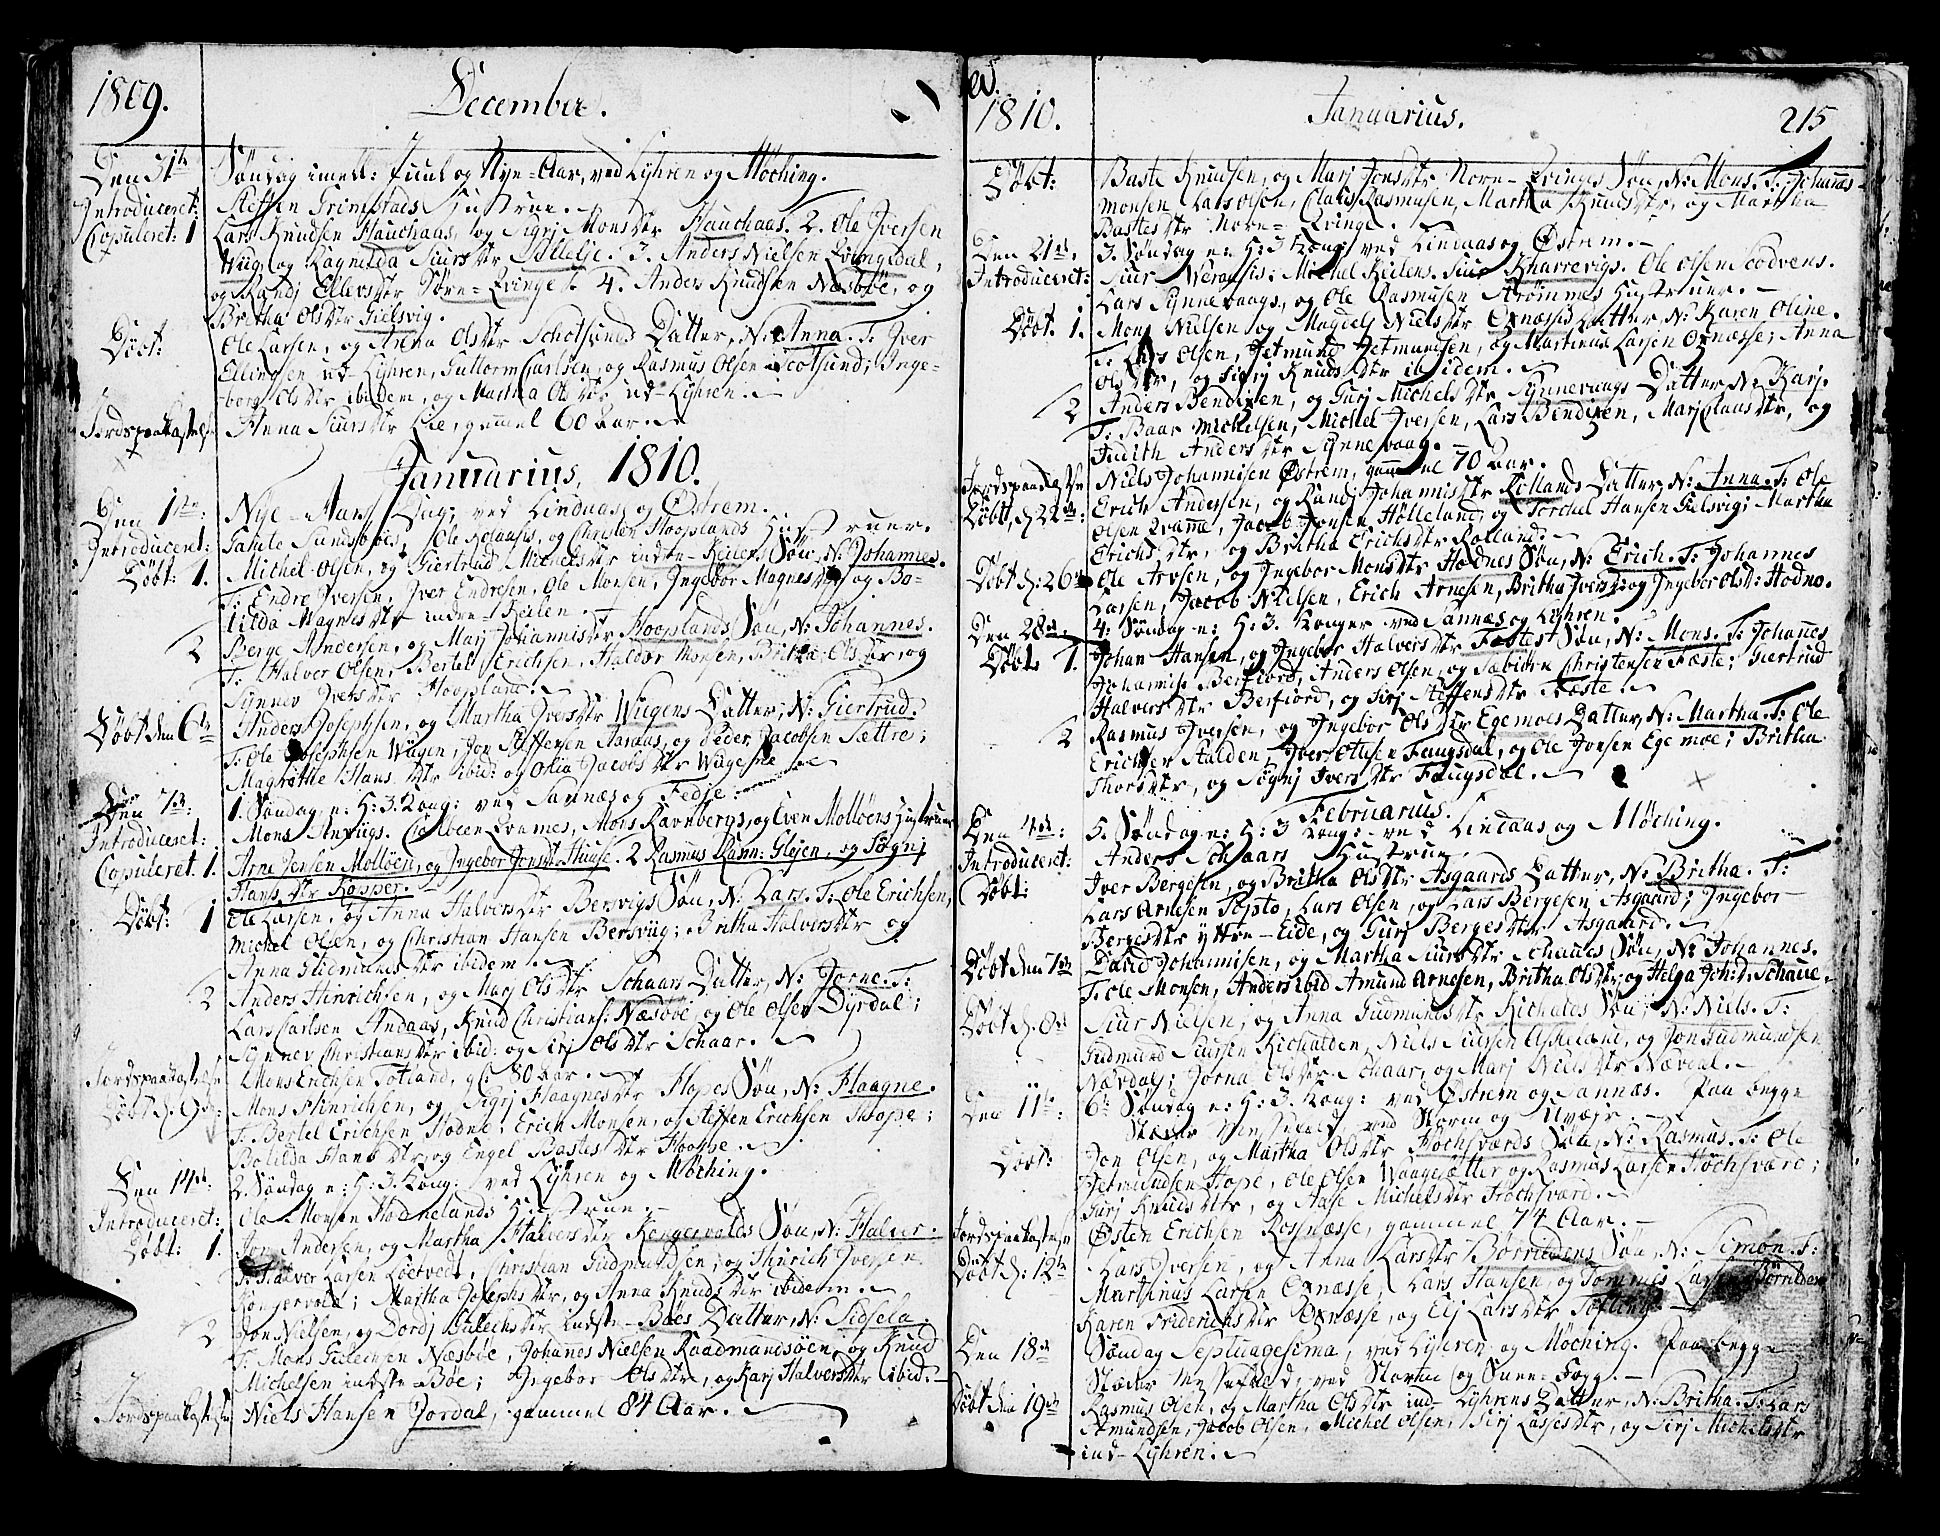 1809. December.
Den 31te Søndag imell: Juul og Nye-Aar, ved Lyhren og Möching.
Introduceret: Steffen Grimstads Hustrue.
Copuleret: 1 Lars Knudsen Hauchaas, og Sigrj Monsdtr Hauchaas. 2. Ole Jversen
Wiig, og Ragnilda Siursdtr 3. Anders Nielsen Qvingedal,
og Randj Ellevsdtr Søre-Qvinge 4. Anders Knudsen Næsbøe, og
Britha Olsdtr Gielsvig.
Döbt: Ole Larsen, og Anna Olsdtr Schotsunds Datter, N: Anna. T: Jver
Ellingsen ud-Lyhren, Guttorm Carlsen, og Rasmus Olsen Scotsund; Inge-
borg Olsdtr ibidem, og Martha Olsdtr ud-Lyhren.
Jordspaakastelse Anna Siursdtr Lie, gammel 60 Aar.
Januarius, 1810.
Den 1te: Nye-Aars Dag, ved Lindaas og Østrem.
Introduceret: Sundsbøes, Ole Rolaases, og Christen Hooplands Hustruer.
Döbt: 1. Michel Olsen, og Giertrud Michelsdtr indre-Keilens Søn, N: Johannes.
T: Endre Jversen, Jver Endresen, Ole Monsen, Ingebor Magnesdtr og Bo-
tilda Magnesdtr indre-Keilen.
2 Berge Andersen, og Marj Johannisdtr Hooplands Søn, N: Johannes.
T: Halver Olsen, Bertel Erichsen, Haldor Monsen, Britha Olsdtr, og
Synnev Jversdtr Hoopland.
Döbt den 6te Anders Josephsen, og Martha Jversdtr Wiigens Datter, N: Giertrud.
T: Ole Josephsen Wiigen, Jon Steffensen Aaraas, og Peder Jacobsen Sættre;
Magrethe Hansdtr ibid: og Olia Jacobsdtr Wiigene
Den 7de 1. Søndag e: H: 3. Kong: ved Sannæs og Fedje.
Introduceret: Mons Anviigs, Colbeen Qvames, Mons Ravnbergs, og Even Molløens Hustruer
Copuleret. 1. Arne Jensen Molløen, og Ingebor Jonsdt. Huuse. 2 Rasmus Rasm: Glejen, og Sögnj
Hansdtr Kosper.
Döbt: 1 Ole Larsen, og Anna Halversdtr Bersvigs Søn, N: Lars. T: Ole Erichsen,
Michel Olsen, og Christian Hansen Bersviig; Britha Halversdtr og
Anna Gudmunsdtr ibidem.
2 Anders Hinrichsen, og Marj Olsdtr Schaars Datter, N: Jorne. T:
Lars Carlsen Andaas, Knud Christians: Næsbøe, og Ole Olsen Dyrdal;
Synnev Christiansdtr ibid: og Sirj Olsdtr Schaar.
Jordspaakastelse Mons Erichsen Totland, gl: 80 Aar.
Döbt d: 9de: Mons Hinrichsen, og Sigrj Haagnesdtr Hopes Søn, N: Haagne.
T: Bertel Erichsen Hodne, Erich Monsen, og Steffen Erichsen Hope;
Botilda Hansdtr, og Engel Bastesdtr Hoope.
Den 14de: 2. Søndag e: H: 3. Kong: ved Lyhren og Möching.
Introduceret: Ole Monsen Hodnelands Hustrue.
Döbt: 1. Jon Andersen, og Martha Halversdtr Kongervolds Søn, N: Halver.
T: Halver Larsen Loetvedt, Christian Gudmundsen, og Hinrich Jversen
Kongervold; Martha Josephsdtr, og Anna Knudsdtr ibidem.
2 Jon Nielsen, og Dordj indste-Bøes Datter, N: Sidsela.
T: Mons Gulleinsen Næsbøe, Johanes Nielsen Raadmandsöen, og Knud
Michelsen indste-Bøe; Ingebor Olsdtr, og Karj Halversdtr ibid.
Jordspaakastelse Niels Hansen Jordal, gammel 84 Aar.
1810. Januarius. 215
Döbt: Baste Knudsen, og Marj Jonsdtr Norre-Qvinges Søn, N: Mons. T: Johannes
Monsen, Lars Olsen, Claus Rasmusen, Martha Knudsdtr, og Martha
Bastesdtr Norre-Qvinge.
Den 21de, 3. Søndag e: H: 3 Kong: ved Lindaas og Østrem.
Introduceret: Siur Veraasis, Michel Keilens, Siur Knarrevigs, Ole Olsen Scodvens.
Lars Synnevaags, og Ole Rasmusen Strømmes Hustruer.
Döbt. 1. Mons Nielsen og Magdels Nielsdtr Oxnæsses Datter, N: Karen Oline.
T: Lars Olsen, Jetmund Jetmundsen, og Martinus Larsen Oxnæsse; Anna
Olsdtr, og Sirj Knudsdtr ibidem.
2 Anders Bendixen, og Gurj Michelsdtr Synnevaags Datter, N: Karj.
T: Baar Michelsen, Michel Jversen, Lars Bendixen, Marj Clausdtr, og
Judith Andersdtr Synnevaag.
Jordspaakastelse Niels Johannisen Østrem, gammel 70 Aar.
Döbt, d: 22de: Erich Andersen, og Randj Johannisdtr Rollands Datter, N: Anna. T: Ole
Olsen Qvamme, Jacob Jonsen Hölleland, og Torchel Hansen Gielsvig; Martha
Erichsdtr, og Britha Erichsdtr Rolland.
Döbt d: 26de Ole Arnsen, og Ingebor Monsdtr Hodnes Søn, N: Erich. T: Johannes
Larsen, Jacob Nielsen, Erich Arnesen, Britha Jversdt og Ingebor Olsd: Hodne.
Den 28de. 4: Søndag e: H: 3. Konger ved Sannæs og Lyhren.
Döbt 1. Johan Hansen, og Ingebor Halversdtr Festes Søn, N: Mons. T: Johanes
Johannis: Berfiord, Anders Olsen, og Sæbiörn Christensen Fæste; Giertrud
Halversdtr Berfiord, og Sirj Steffensdtr Fæste.
2 Rasmus Jversen, og Ingebor Olsdtr Egemoes Datter, N: Martha. T: Ole
Erichsen Aalden, Jver Olsen Fangsdal, og Ole Jonsen Egemoe; Britha
Thorsdtr, og Sögnj Jversdtr Fangsdal.
Februarius.
Den 4de: 5. Søndag e: H: 3 Kong: ved Lindaas og Möching.
Introduceret: Anders Schaars Hustrue.
Döbt: Jver Bergesen, og Britha Olsdtr Asgaards Datter, N: Britha. T:
Lars Arnesen Topto, Lars Olsen, og Lars Bergesen, Asgaard; Ingebor
Bergesdtr yttre-Eide, og Gurj Bergesdtr Asgaard.
Döbt den 7de David Johannisen, og Martha Siursdtr Schaues Søn, N: Johannes.
T: Ole Monsen, Anders ibid Amund Arnesen, Britha Olsdtr, og Helga Joh:d: Schaue.
Döbt d. 8de Siur Nielsen, og Anna Gudmundsdtr Kichaldes Søn, N: Niels. T:
Gudmund Siursen Kichalden, Niels Siursen Asheland, og Jon Gudmundsen
Nævdal; Jorna Olsdtr Schaar, og Marj Nielsdtr Nævdal.
Den 11te: 6te Søndag e: H: 3. Kong: ved Østrem og Sannæs. Paa begge
Stæder Messefald, ved Storm og Uvejr.
Döbt: Jon Olsen, og Martha Olsdtr Hochsværds Søn, N: Rasmus. T: Ole
Jetmundsen Hope, Ole Olsen Waagesætter og Rasmus Larsen Höchsværd;
Gurj Knudsdtr, og Aase Michelsdtr Hochsværd.
Jordspaakastelse Østen Erichsen Rosnæsse, gammel 74 Aar.
Döbt d: 12te Lars Jversen, og Anna Larsdtr Börrildens Søn, N: Simon. T:
Martinus Larsen Oxnæsse, Lars Hansen, og Tommis Larsen Börrilden
Karen Friderichsdtr Oxnæsse, og Elj Larsdtr
Den 18de Søndag Septuagesima, ved Lyhren og Möching. Paa begge
Stæder Messefald, ved Storm og Snee-Fogg.
Döbt den 19de Rasmus Olsen, og Martha Olsdtr ind-Lyhrens Datter, N: Britha. T: Lars
Amundsen, Jacob Olsen, Michel Olsen, Sirj Lassesdtr, og Sirj Michelsdtr
ind-Lyhren.